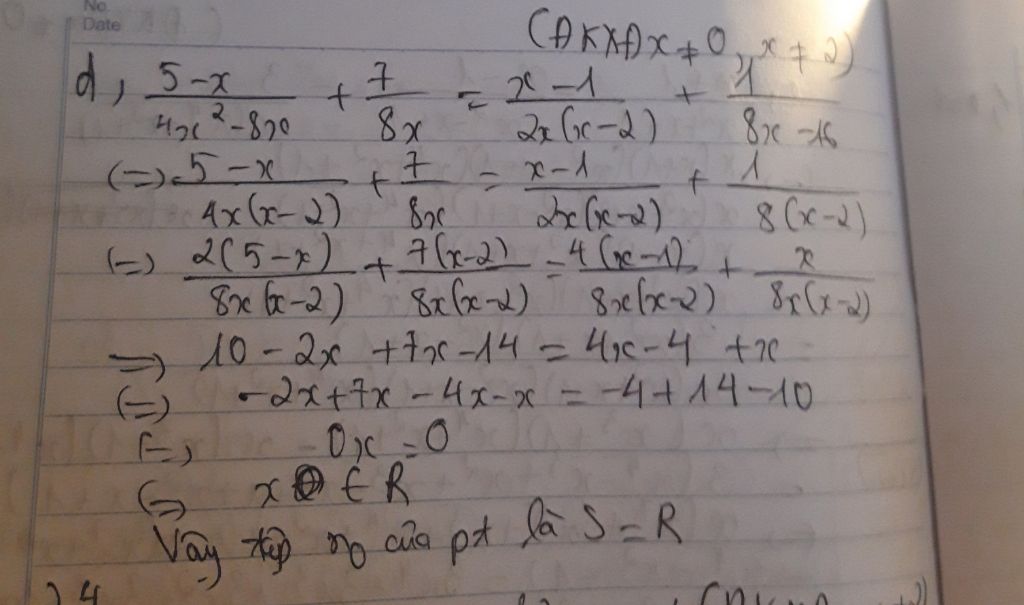 No
Date
(ĐKXĐ x ≠ 0, x ≠ 2)
d, (5-x)/(4x²-8x) + 7/(8x) = (x-1)/(2x(x-2)) + 1/(8x-16)
(=) (5-x)/(4x(x-2)) + 7/(8x) = (x-1)/(2x(x-2)) + 1/(8(x-2))
(=) 2(5-x)/(8x(x-2)) + 7(x-2)/(8x(x-2)) = 4(x-1)/(8x(x-2)) + x/(8x(x-2))
=> 10-2x+7x-14=4x-4+x
(=) -2x+7x-4x-x=-4+14-10
(=) 0x=0
(=) x ∈ R
Vậy tập no của pt là S=R